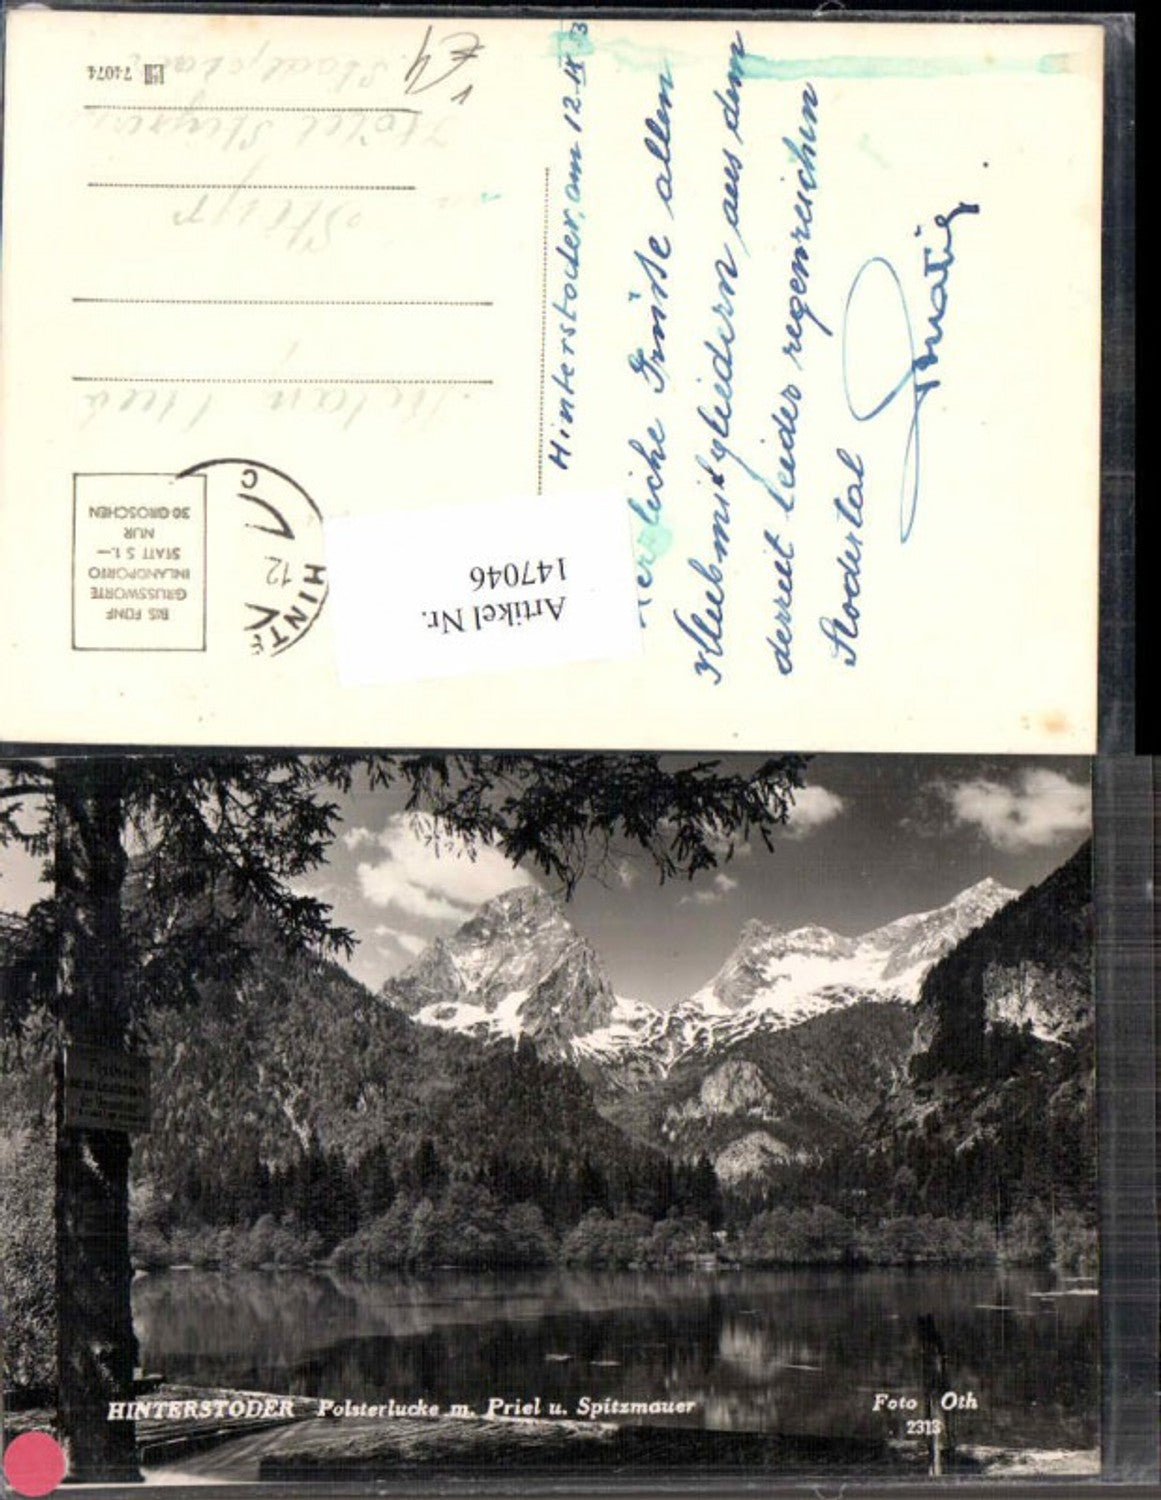 Hinterstoder, am 12. IX
Herzliche Grüße allen
Klubmitgliedern aus dem
derzeit leider regenreichen
Stodertal
74074
Steyr
BIS FÜNF
GRUSSWORTE
INLANDPORTO
STATT S 1.—
NUR
30 GROSCHEN
12
HINT
Artikel Nr.
147046
HINTERSTODER Polsterlucke m. Priel u. Spitzmauer
Foto Oth
2313